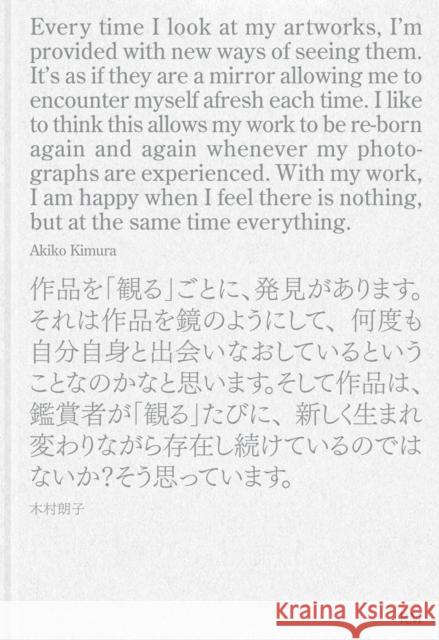 Every time I look at my artworks, I'm
provided with new ways of seeing them.
It's as if they are a mirror allowing me to
encounter myself afresh each time. I like
to think this allows my work to be re-born
again and again whenever my photo-
graphs are experienced. With my work,
I am happy when I feel there is nothing,
but at the same time everything.
Akiko Kimura
作品を「観る」ごとに、発見があります。
それは作品を鏡のようにして、何度も
自分自身と出会いなおしているという
ことなのかなと思います。そして作品は、
鑑賞者が「観る」たびに、新しく生まれ
変わりながら存在し続けているのでは
ないか？そう思っています。
木村朗子